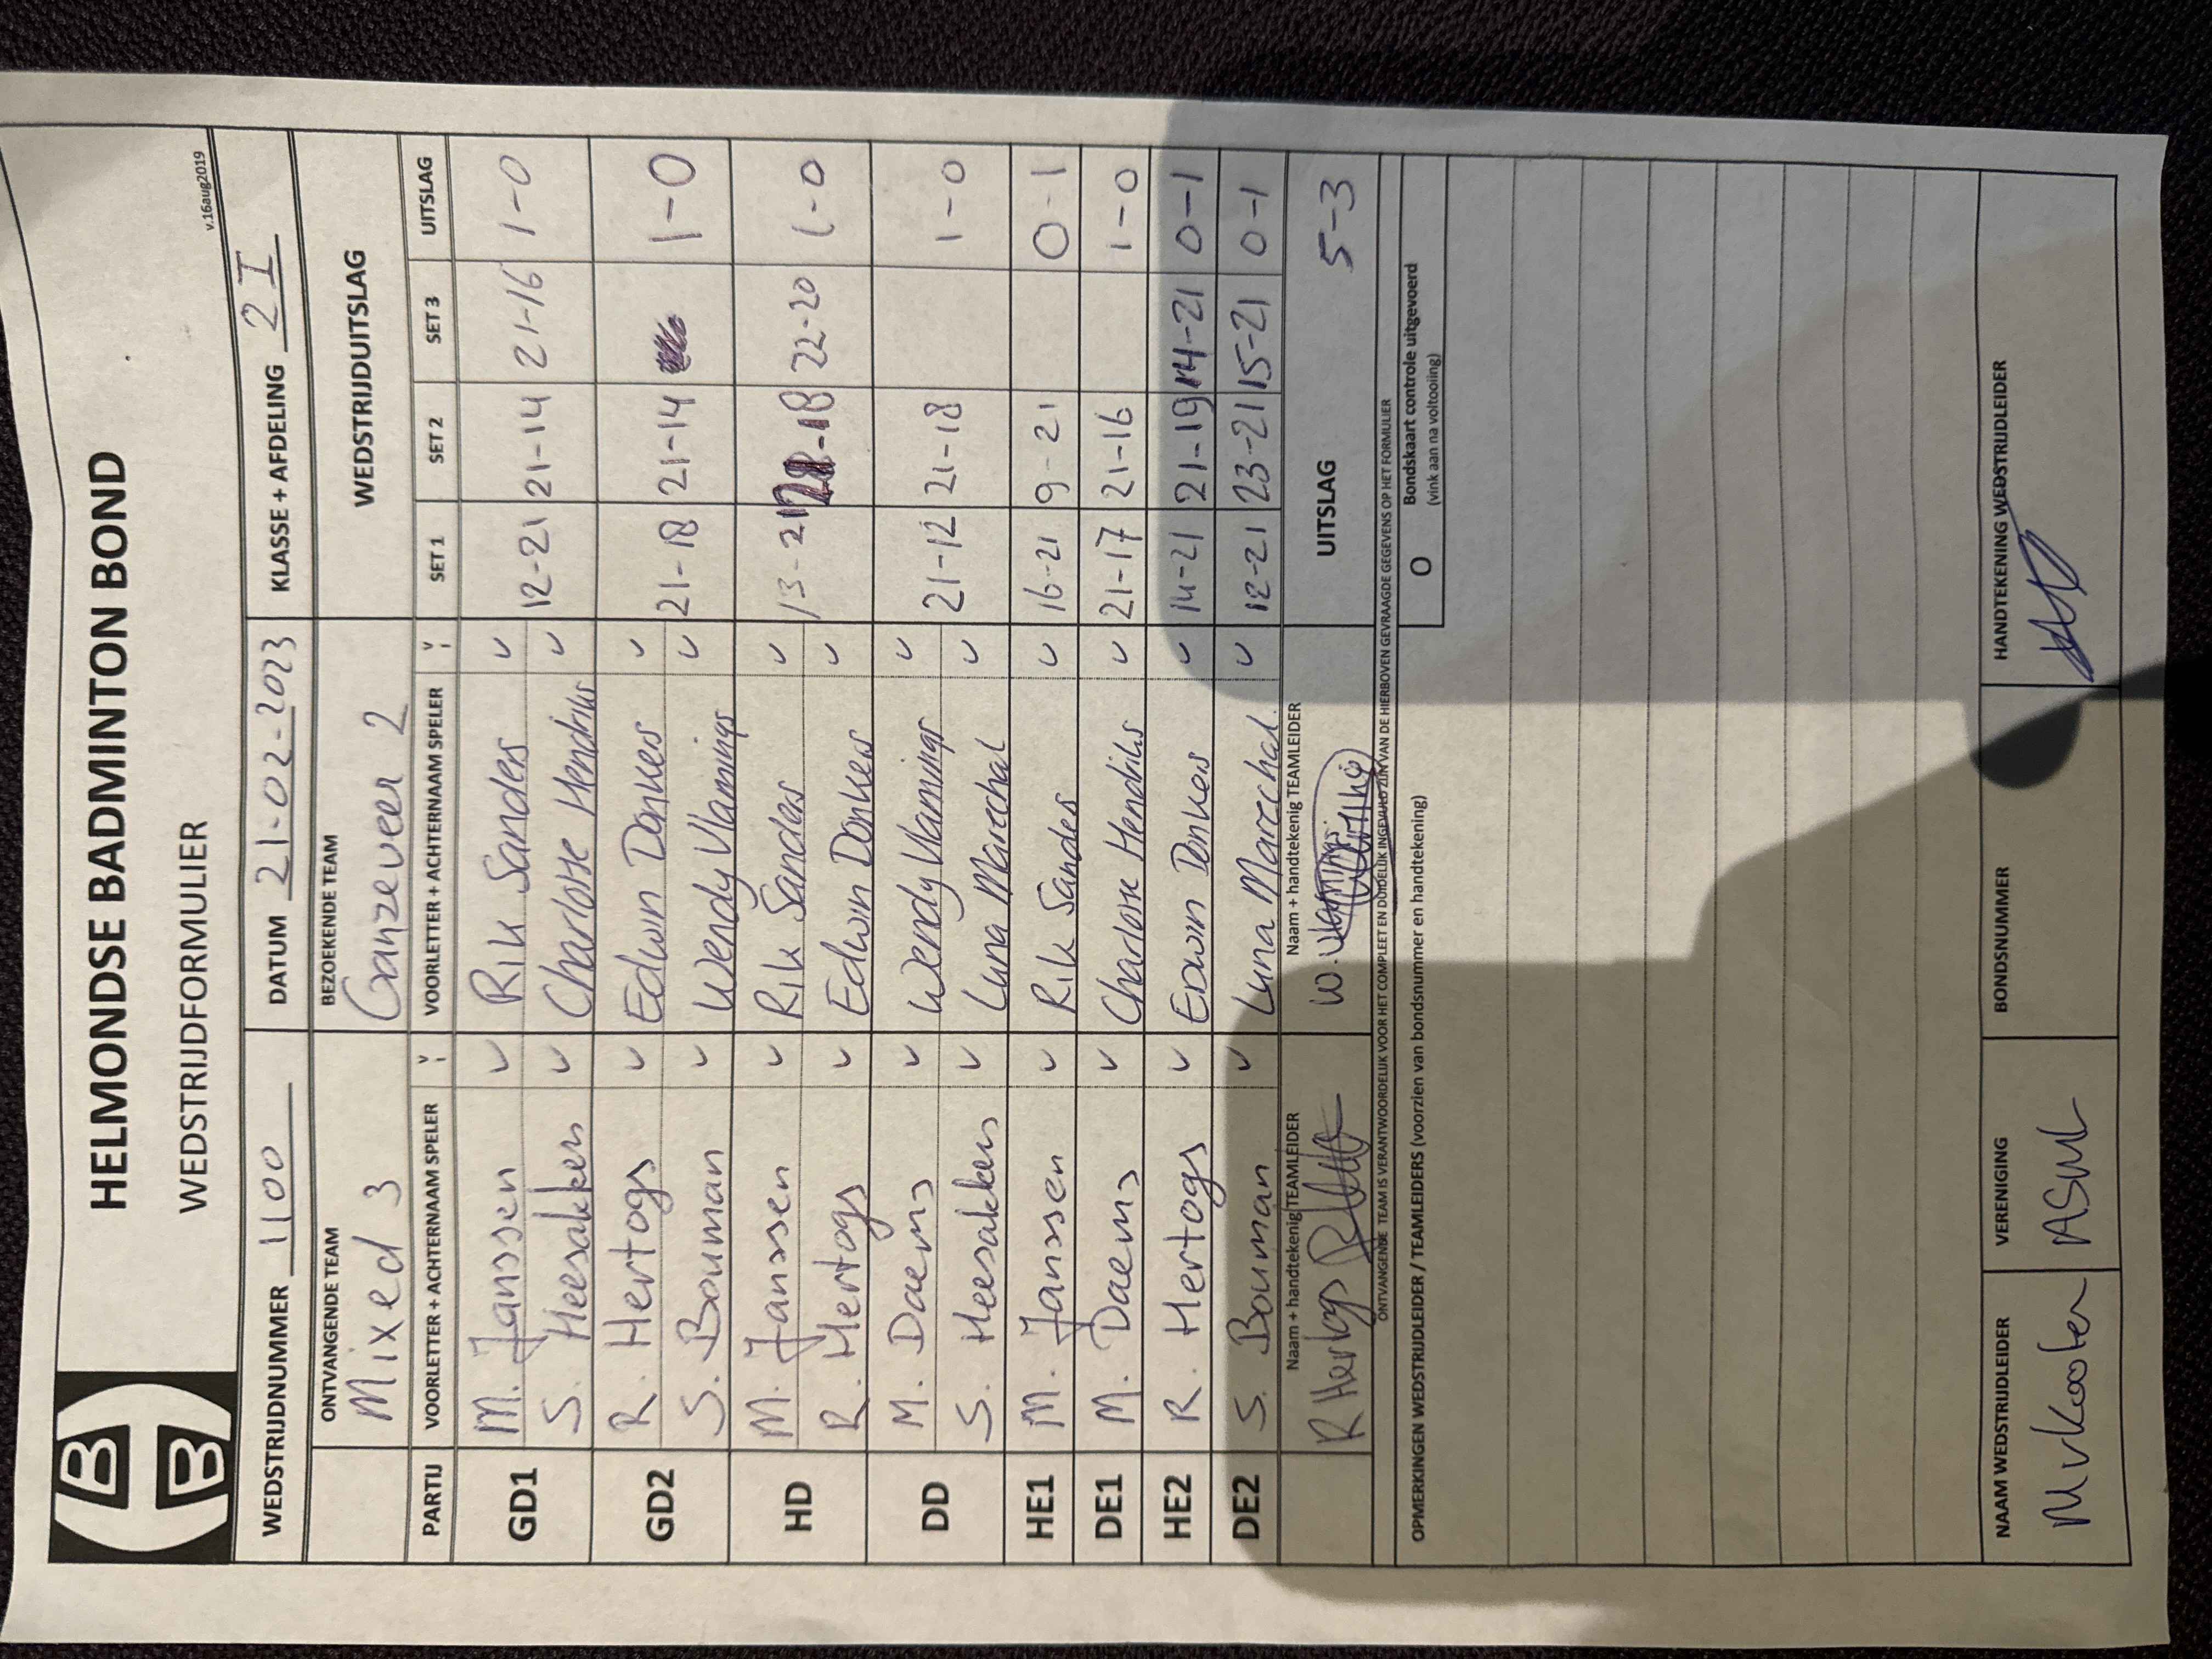 HELMONDSE BADMINTON BOND
WEDSTRIJDFORMULIER
v.16aug2019
WEDSTRIJDNUMMER 1100 DATUM 21-02-2023 KLASSE + AFDELING 2 I
ONTVANGENDE TEAM BEZOEKENDE TEAM WEDSTRIJDUITSLAG
Mixed 3 Ganzeveer 2
PARTIJ VOORLETTER + ACHTERNAAM SPELER v VOORLETTER + ACHTERNAAM SPELER v SET 1 SET 2 SET 3 UITSLAG
GD1 M. Janssen v Rik Sanders v 12-21 21-14 21-16 1-0
S. Heesakkers v Charlotte Hendriks v
GD2 R. Hertogs v Edwin Donkers v 21-18 21-14 1-0
S. Bouman v Wendy Vlamings v
HD M. Janssen v Rik Sanders v 13-21 -18 22-20 1-0
R. Hertogs v Edwin Donkers v
DD M. Daems v Wendy Vlamings v 21-12 21-18 1-0
S. Heesakkers v Luna Marechal v
HE1 M. Janssen v Rik Sanders v 16-21 9-21 0-1
DE1 M. Daems v Charlotte Hendriks v 21-17 21-16 1-0
HE2 R. Hertogs v Edwin Donkers v 14-21 21-19 14-21 0-1
DE2 S. Bouman v Luna Marechal v 12-21 23-21 15-21 0-1
Naam + handtekenig TEAMLEIDER Naam + handtekenig TEAMLEIDER UITSLAG 5-3
R Hertogs W. Vlamings
ONTVANGENDE TEAM IS VERANTWOORDELIJK VOOR HET COMPLEET EN DUIDELIJK INGEVULD ZIJN VAN DE HIERBOVEN GEVRAAGDE GEGEVENS OP HET FORMULIER
OPMERKINGEN WEDSTRIJDLEIDER / TEAMLEIDERS (voorzien van bondsnummer en handtekening) O Bondskaart controle uitgevoerd
(vink aan na voltooiing)
NAAM WEDSTRIJDLEIDER VERENIGING BONDSNUMMER HANDTEKENING WEDSTRIJDLEIDER
M v Kooten